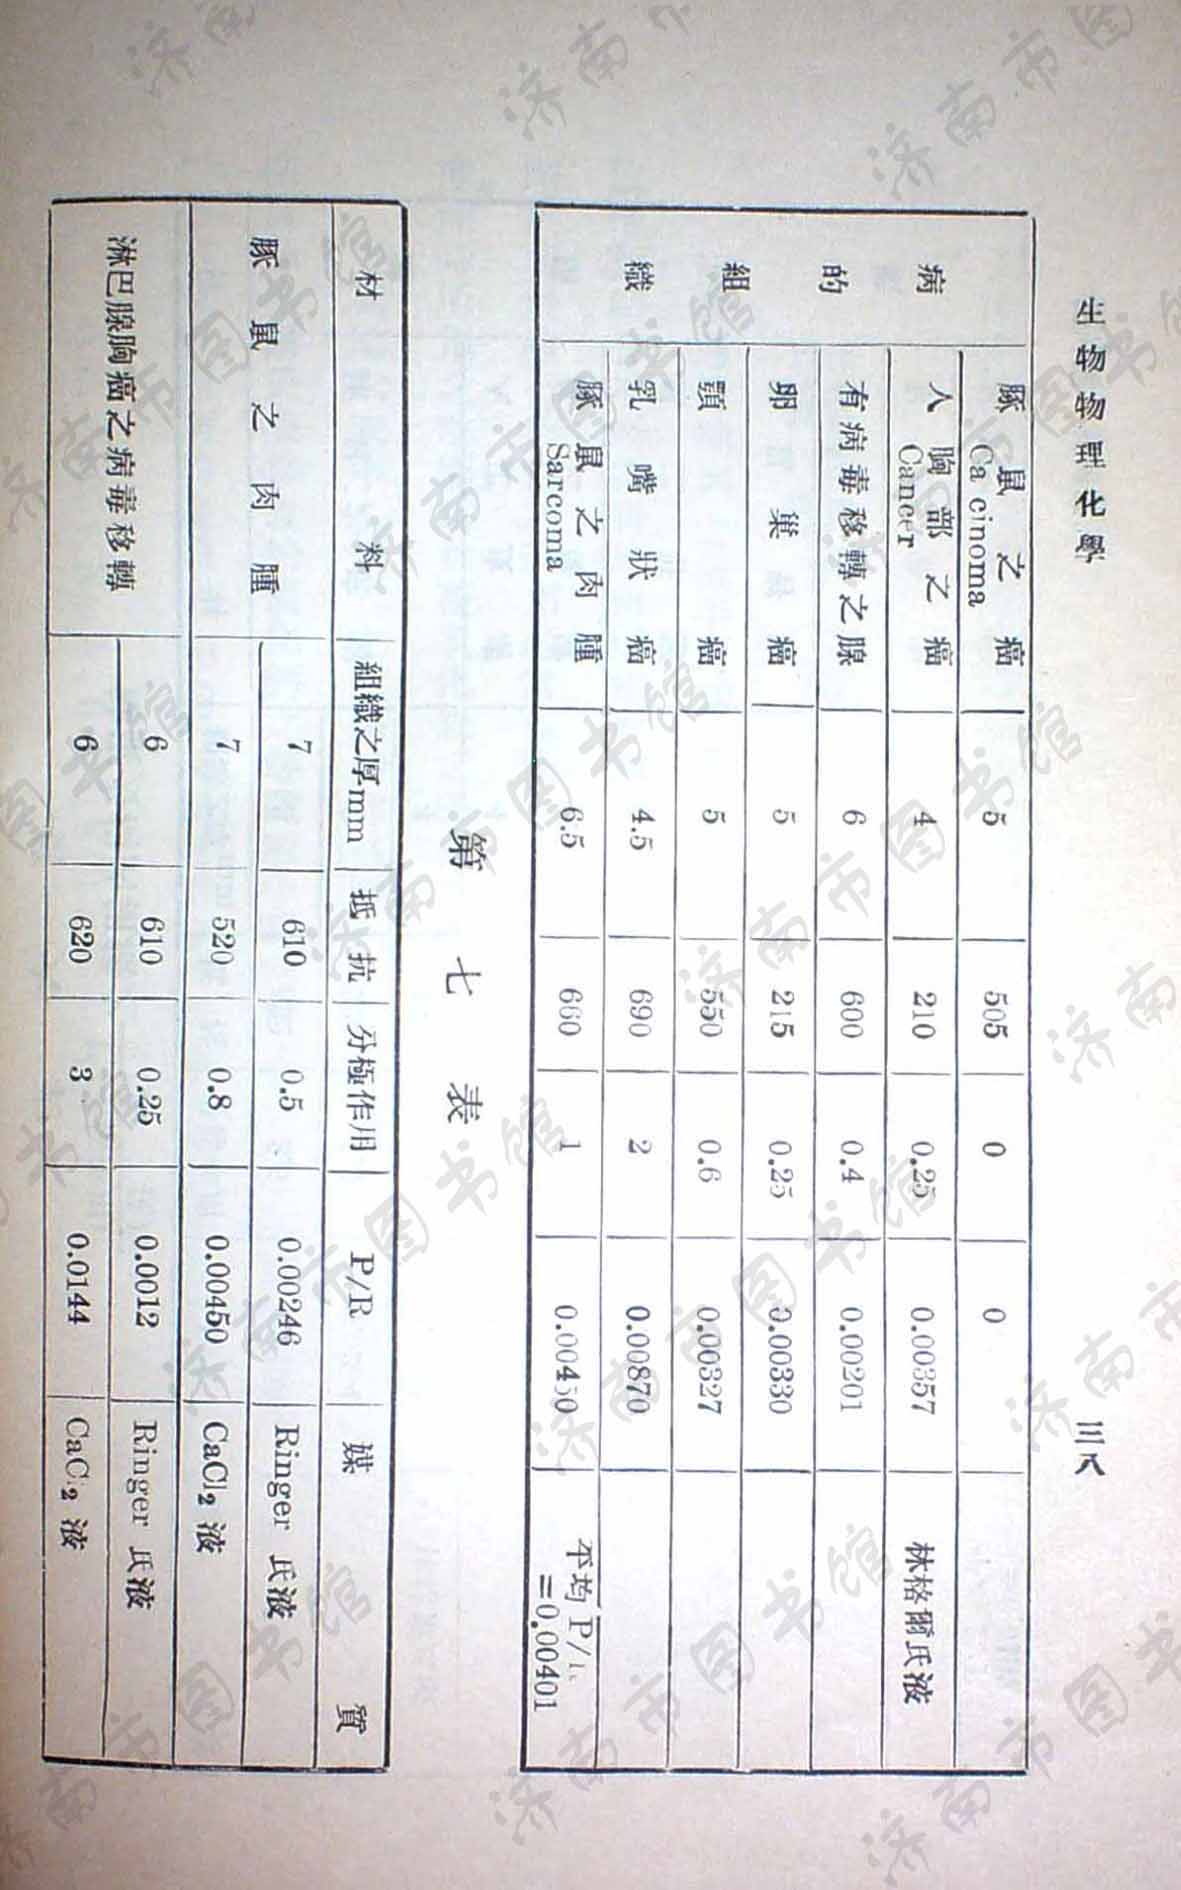 生物物理化學
三八
病的組織
豚鼠之癌 Ca cinoma 5 505 0 0
人胸部之癌 Cancer 4 210 0.25 0.00357 林格爾氏液
有病毒移轉之腺 6 600 0.4 0.00201
卵巢癌 5 215 0.25 0.00330
顎癌 5 550 0.6 0.00327
乳嘴狀癌 4.5 690 2 0.00870
豚鼠之肉腫 Sarcoma 6.5 660 1 0.00450 平均 P/R =0.00401
第七表
材料 組織之厚mm 抵抗 分極作用 P/R 媒質
豚鼠之肉腫 7 610 0.5 0.00246 Ringer 氏液
7 520 0.8 0.00450 CaCl₂ 液
淋巴腺胸癌之病毒移轉 6 610 0.25 0.0012 Ringer 氏液
6 620 3 0.0144 CaCl₂ 液
济南市图书馆